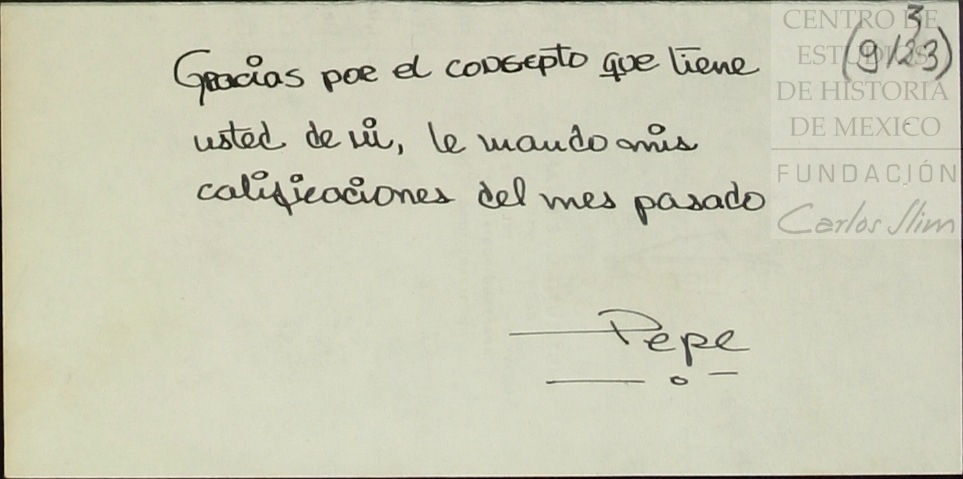 CENTRO DE
ESTUDIOS
DE HISTORIA
DE MEXICO
FUNDACIÓN
Carlos Slim
3
(9/23)
Gracias por el consepto que tiene
usted de mi, le mando mis
calificaciones del mes pasado
Pepe